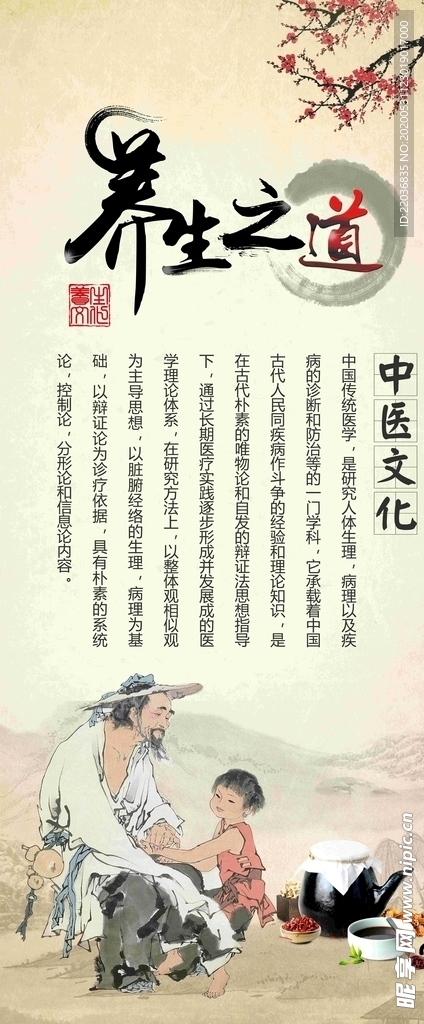 养生之道
养生文化
中医文化
中国传统医学，是研究人体生理，病理以及疾
病的诊断和防治等的一门学科，它承载着中国
古代人民同疾病作斗争的经验和理论知识，是
在古代朴素的唯物论和自发的辩证法思想指导
下，通过长期医疗实践逐步形成并发展成的医
学理论体系，在研究方法上，以整体观相似观
为主导思想，以脏腑经络的生理，病理为基
础，以辩证论为诊疗依据，具有朴素的系统
论，控制论，分形论和信息论内容。
ID:22036835 NO:20200531123019017000
昵享网 www.nipic.cn